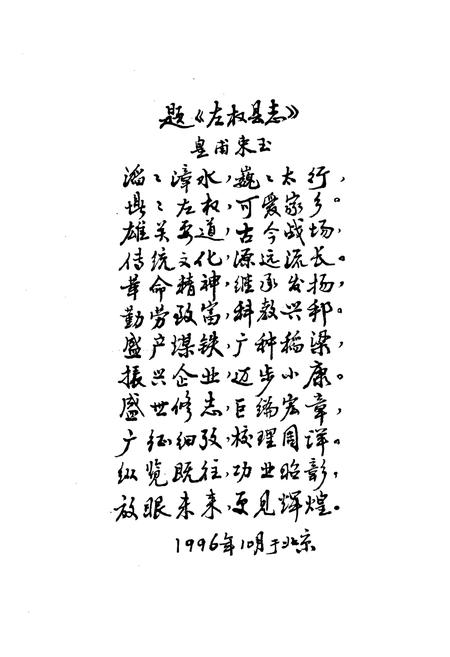 题《左权县志》
皇甫束玉
滔滔漳水，巍巍太行，
堪堪左权，可爱家乡。
雄关要道，古今战场，
传统文化，源远流长。
革命精神，继承发扬，
勤劳致富，科教兴邦。
盛产煤铁，广种稻粱，
振兴企业，迈步小康。
盛世修志，巨编宏章，
广征细改，校理周详。
纵览既往，功业昭彰，
放眼未来，更见辉煌。
1996年10月于北京